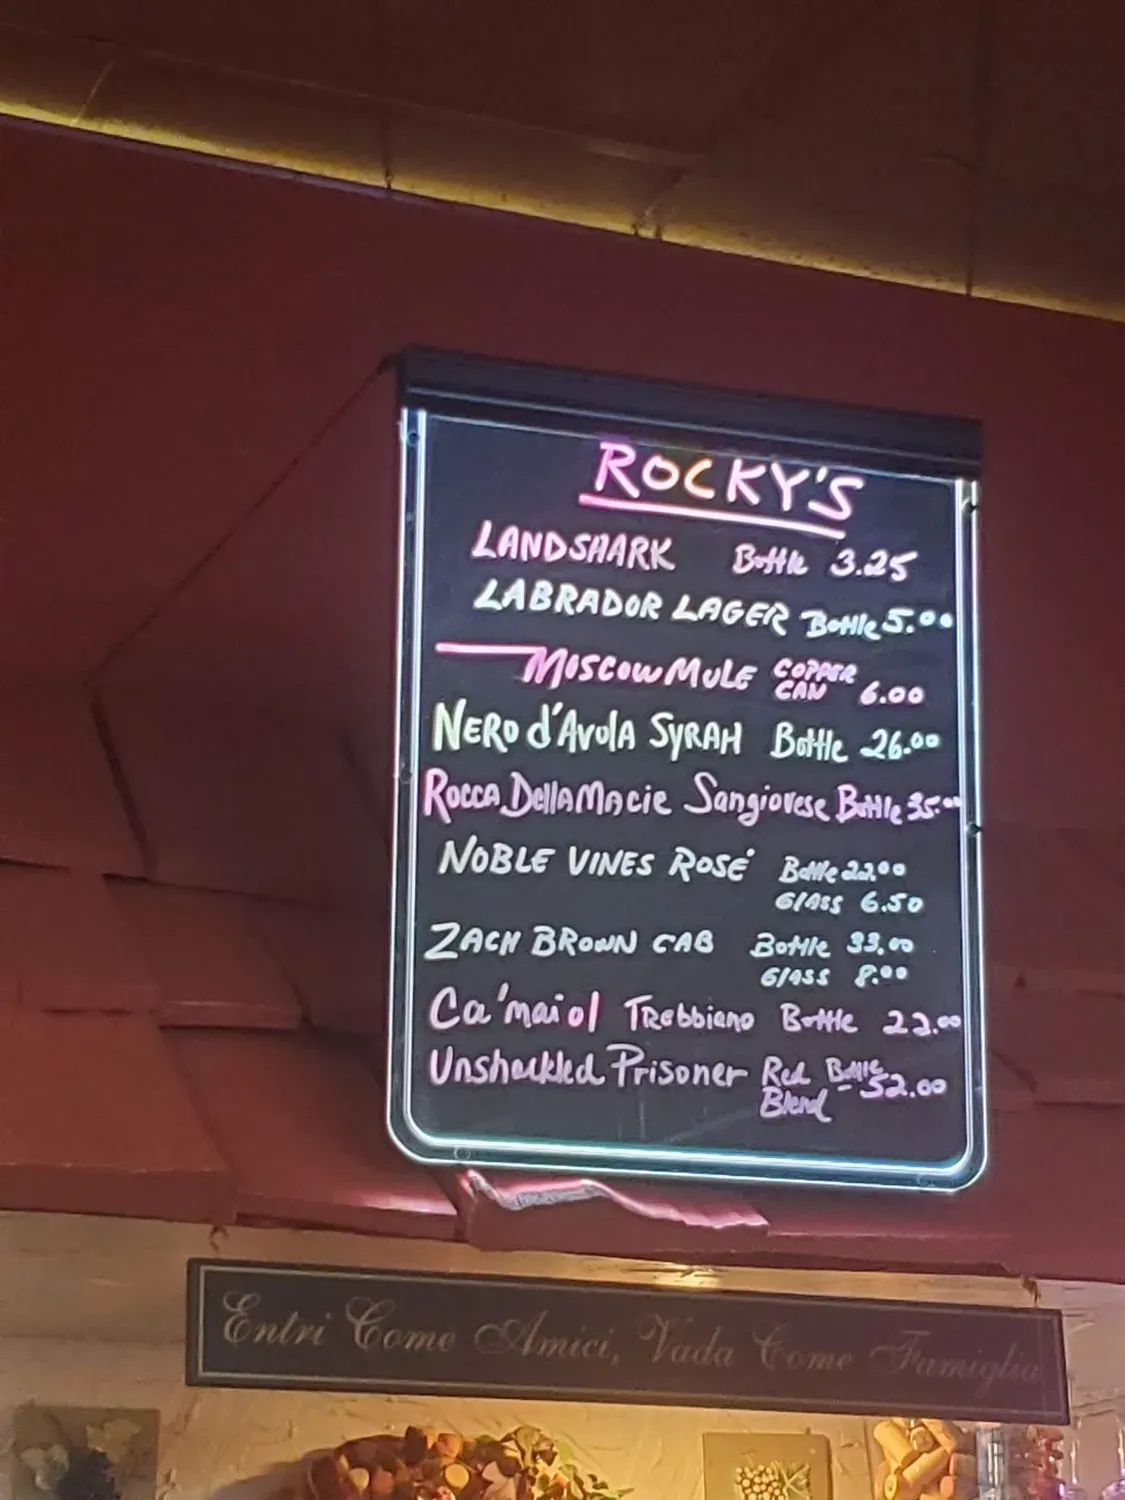 ROCKY'S
LANDSHARK Bottle 3.25
LABRADOR LAGER Bottle 5.00
MOSCOW MULE COPPER CAN 6.00
NERO d'AVOLA SYRAH Bottle 26.00
ROCCA DellAMAcie Sangiovese Bottle 35.00
NOBLE VINES ROSÉ Bottle 22.00
GlASS 6.50
ZACH BROWN CAB Bottle 33.00
GlASS 8.00
Ca'maiol Trebbiano Bottle 22.00
Unshackled Prisoner Red Blend Bottle - 52.00
Entri Come Amici, Vada Come Famiglia